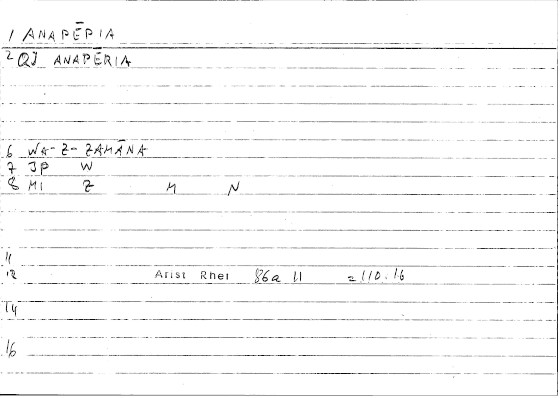 1 ANAPĒPIA
2 QJ ANAPĒRIA
6 WA-Z-ZAMĀNA
7 JP W
8 MI Z M N
11
12 Arist Rhet 86a 11 = 110.16
14
16